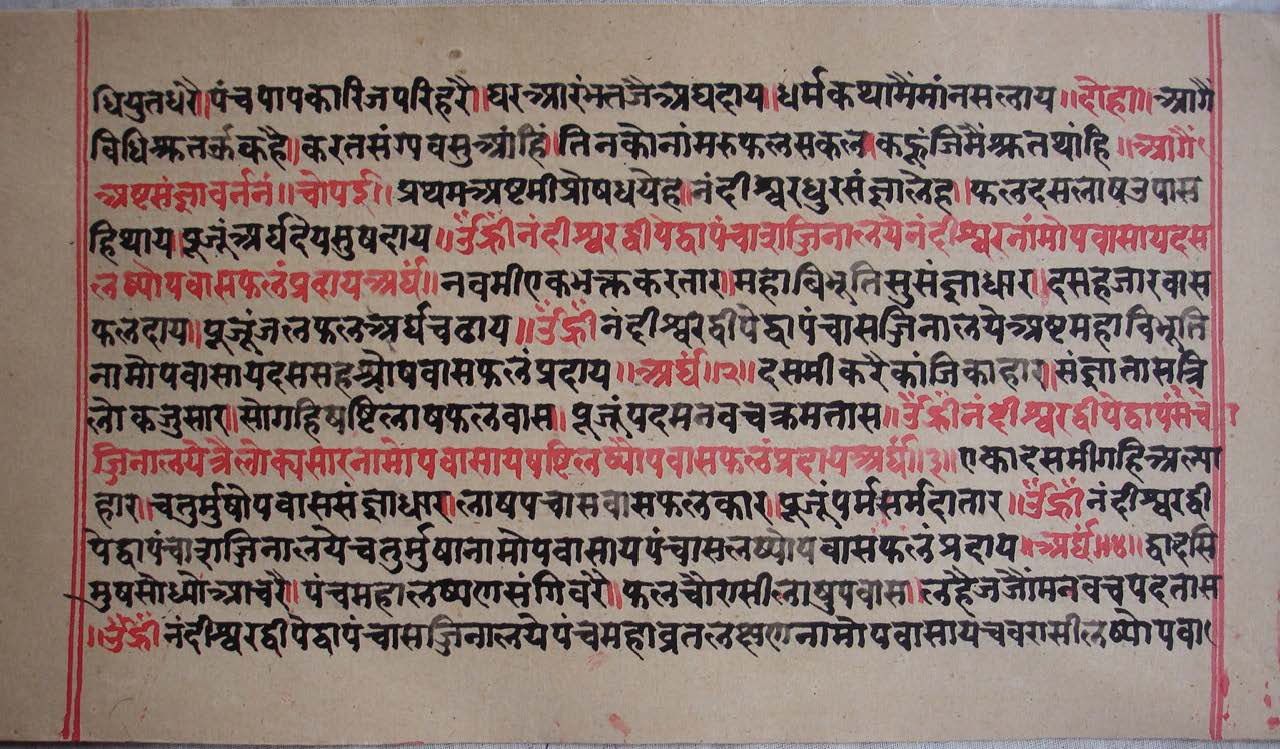 धियुतधरै॥पंचपापकारिजपरिहरै॥घरआरंभतजैअघदाय॥धर्मकथामैंमांनसलाय॥दोहा॥आगैं
विधिक्रतर्क्रकहै॥करतसंग्पवसुआंहिं॥तिनकौनांमरुफलसकल॥कहूंजिमैंक्रतथांहि॥आगैं
अष्टसंज्ञावर्ननं॥चोपई॥प्रथमअष्टमीप्रोषधयेह॥नंदीश्वरधुरसंज्ञालेह॥फलदसलाषउपास
हिथाय॥पूजूंअर्घदेयसुषदाय॥ॐह्रींनंदीश्वरद्वीपेद्वापंचाशजिनालयेनंदीश्वरनांमोपवासायदस
लष्योपवासफलंप्रदायअर्घं॥नवमीएकभक्तकरतार॥महाविभूतिसुसंज्ञाधार॥दसहजारवास
फलदाय॥पूजूंजलफलअर्घचढाय॥ॐह्रींनंदीश्वरद्वीपेद्वापंचासजिनालयेअष्टमहाविभूति
नामोपवासायदससहश्रोषवासफलंप्रदाय॥अर्घं॥२॥दसमीकरैकांजिकाहार॥संज्ञातासत्रि
लोकजुसार॥सोगहिषष्टिलाषफलवास॥पूजूंपदमनवचक्रमतास॥ॐह्रींनंदीश्वरद्वीपेद्वापंसंचे
जिनालयेत्रैलोक्यसारनामोपवासायषष्टिलष्योपवासफलंप्रदायअर्घं॥३॥एकादसमीगहिअल्पा
हार॥चतुर्मुषोपवाससंज्ञाधार॥लाषपचासवासफलकार॥पूजूंपर्मसर्मदातार॥ॐह्रींनंदीश्वरद्वी
पेद्वापंचाशजिनालयेचतुर्मुषानामोपवासायपंचासलष्योपवासंफलंप्रदाय॥अर्घं॥४॥द्वादसि
मुषसोध्यौआचरै॥पंचमहालष्यणसंगिवरै॥फलचौरासीलाषुपवास॥लहैजजौंमनवचपदतास
॥ॐह्रींनंदीश्वरद्वीपेद्वापंचासजिनालयेपंचमहाव्रतलक्षणनामोपवासायचवरासीलष्योपवा